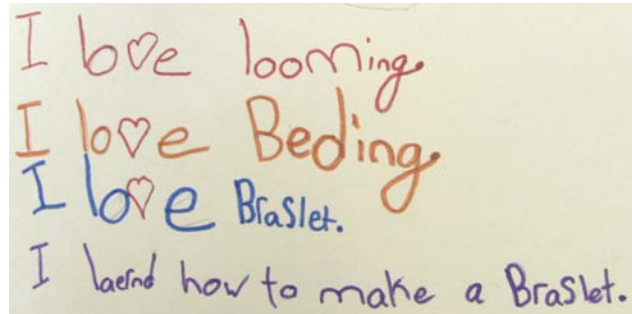 I love looming.
I love Beding.
I love Braslet.
I laernd how to make a Braslet.